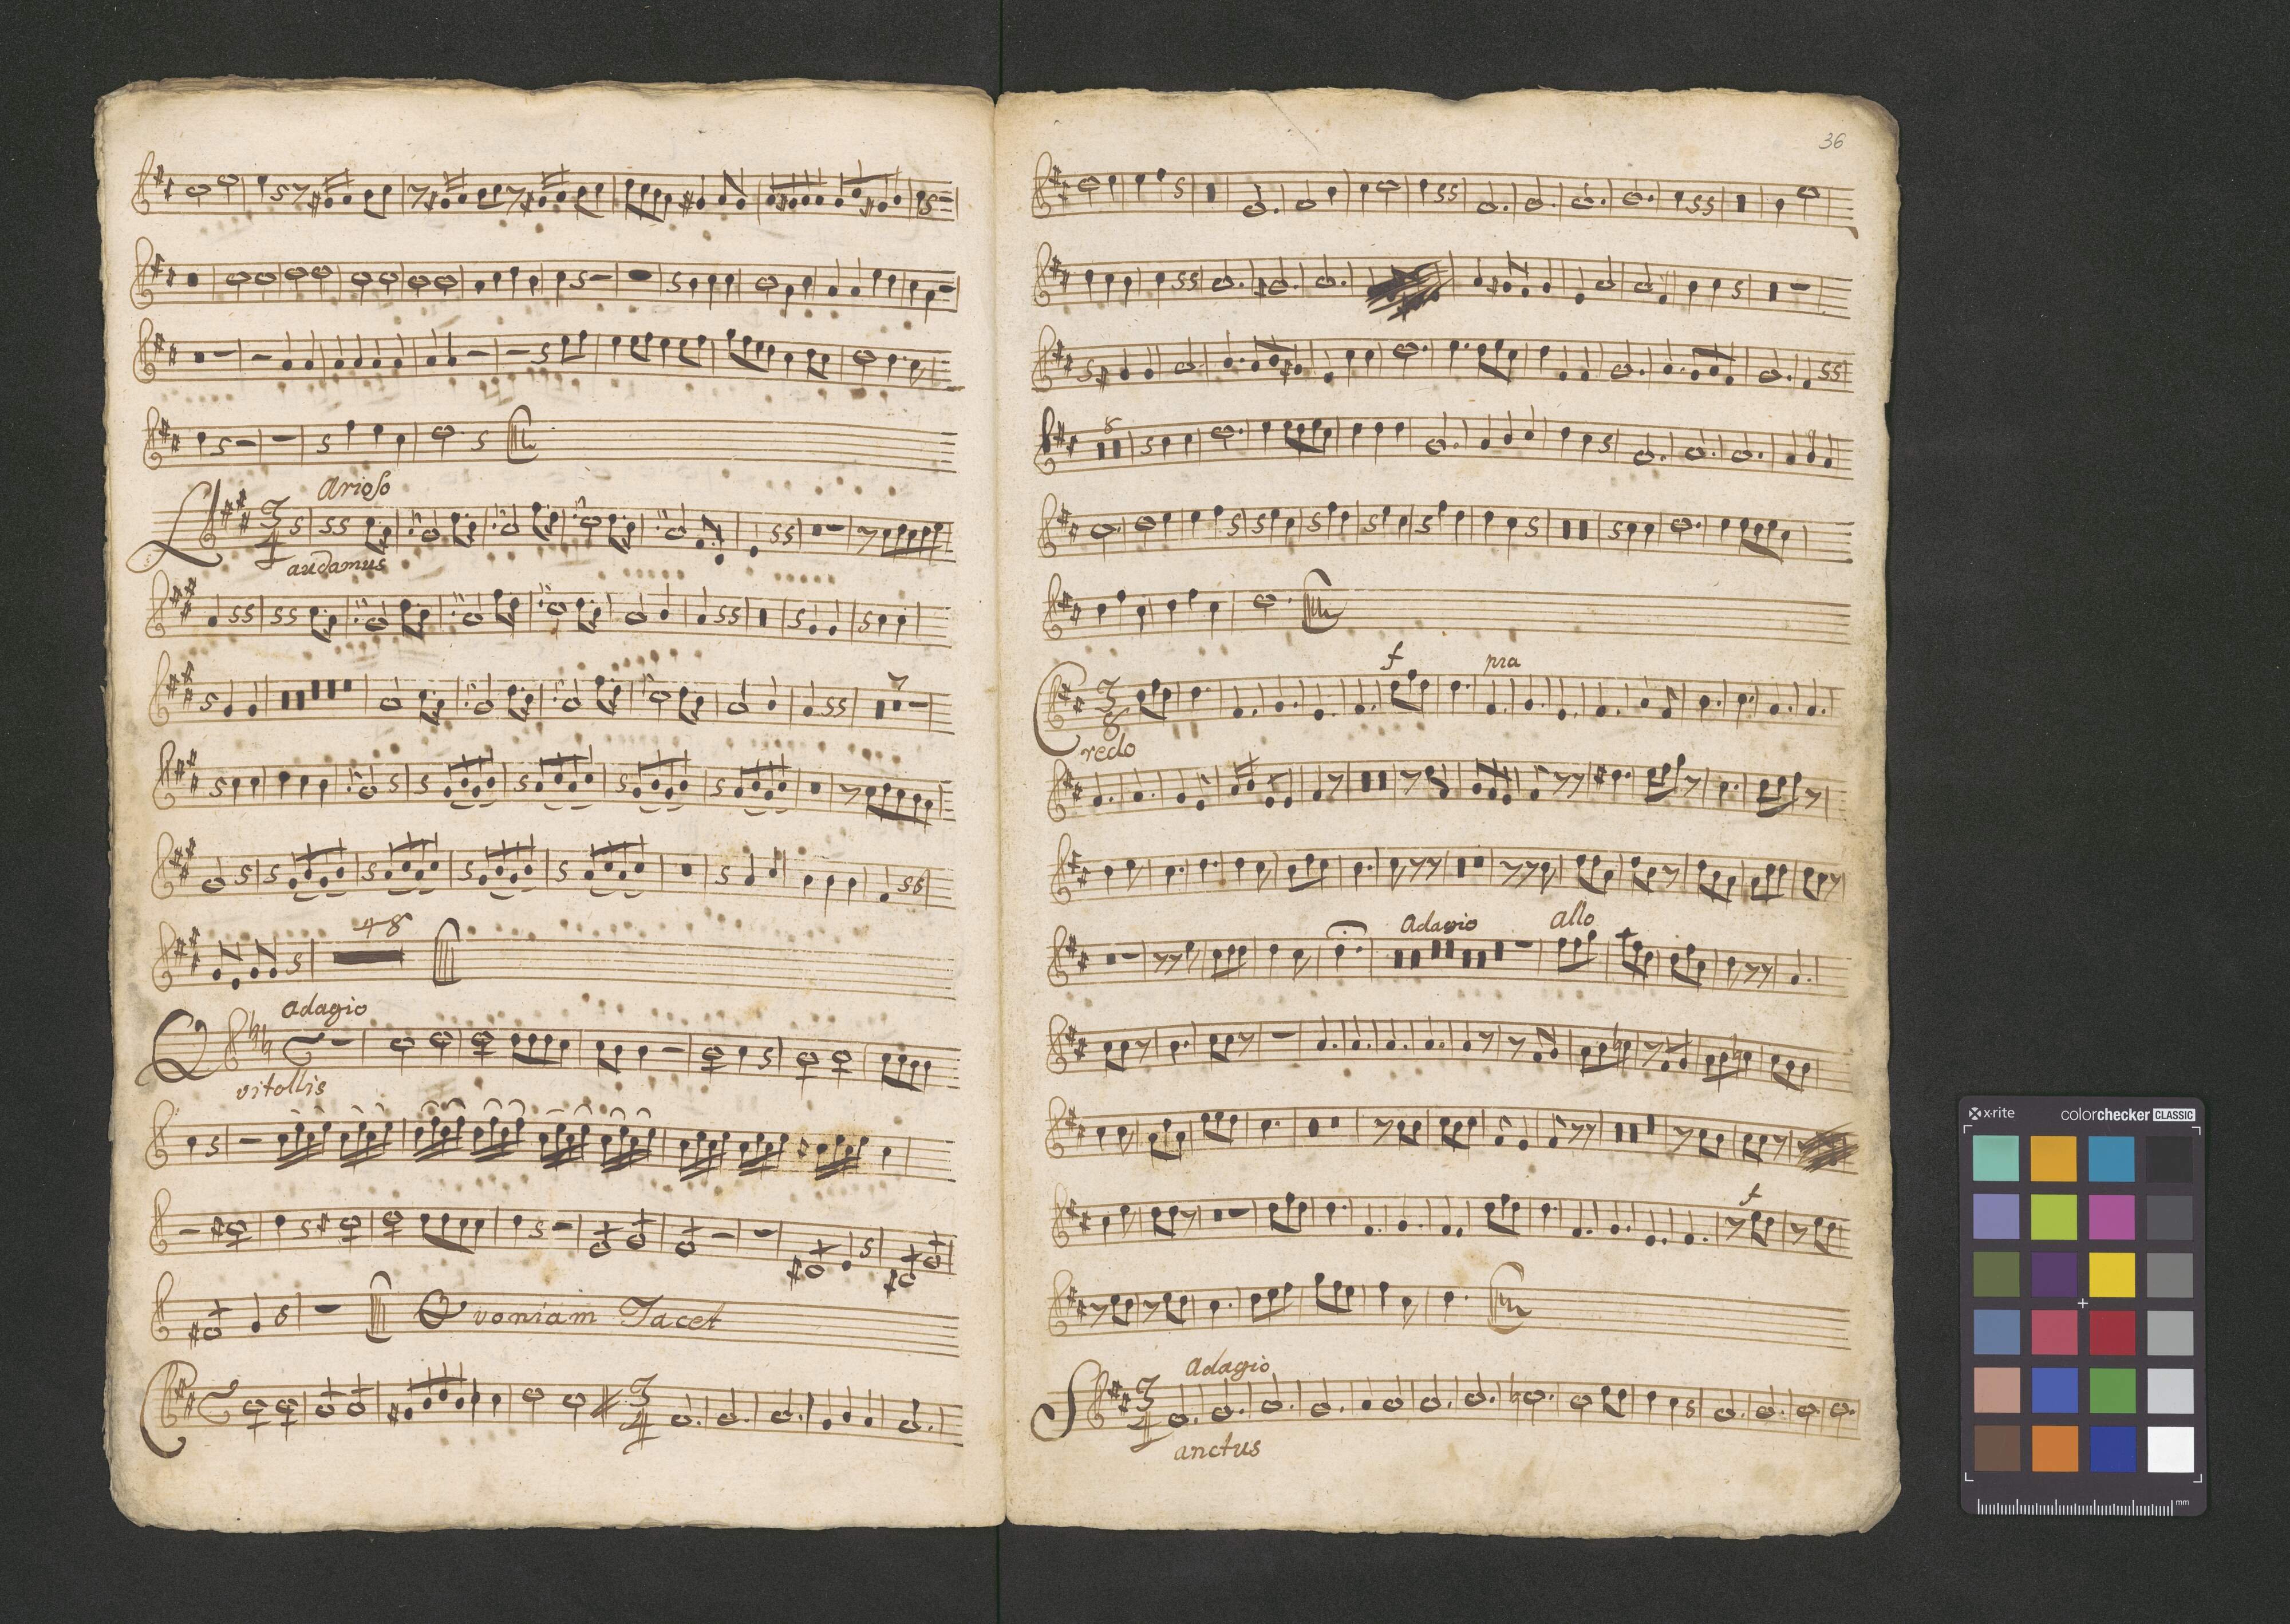 Arioso
Laudamus
7
48
adagio
Qvitollis
Qvoniam Tacet
3
4
36
6
f
pia
3
8
Credo
Adagio
allo
f
adagio
3
4
Sanctus
x-rite
colorchecker CLASSIC
mm